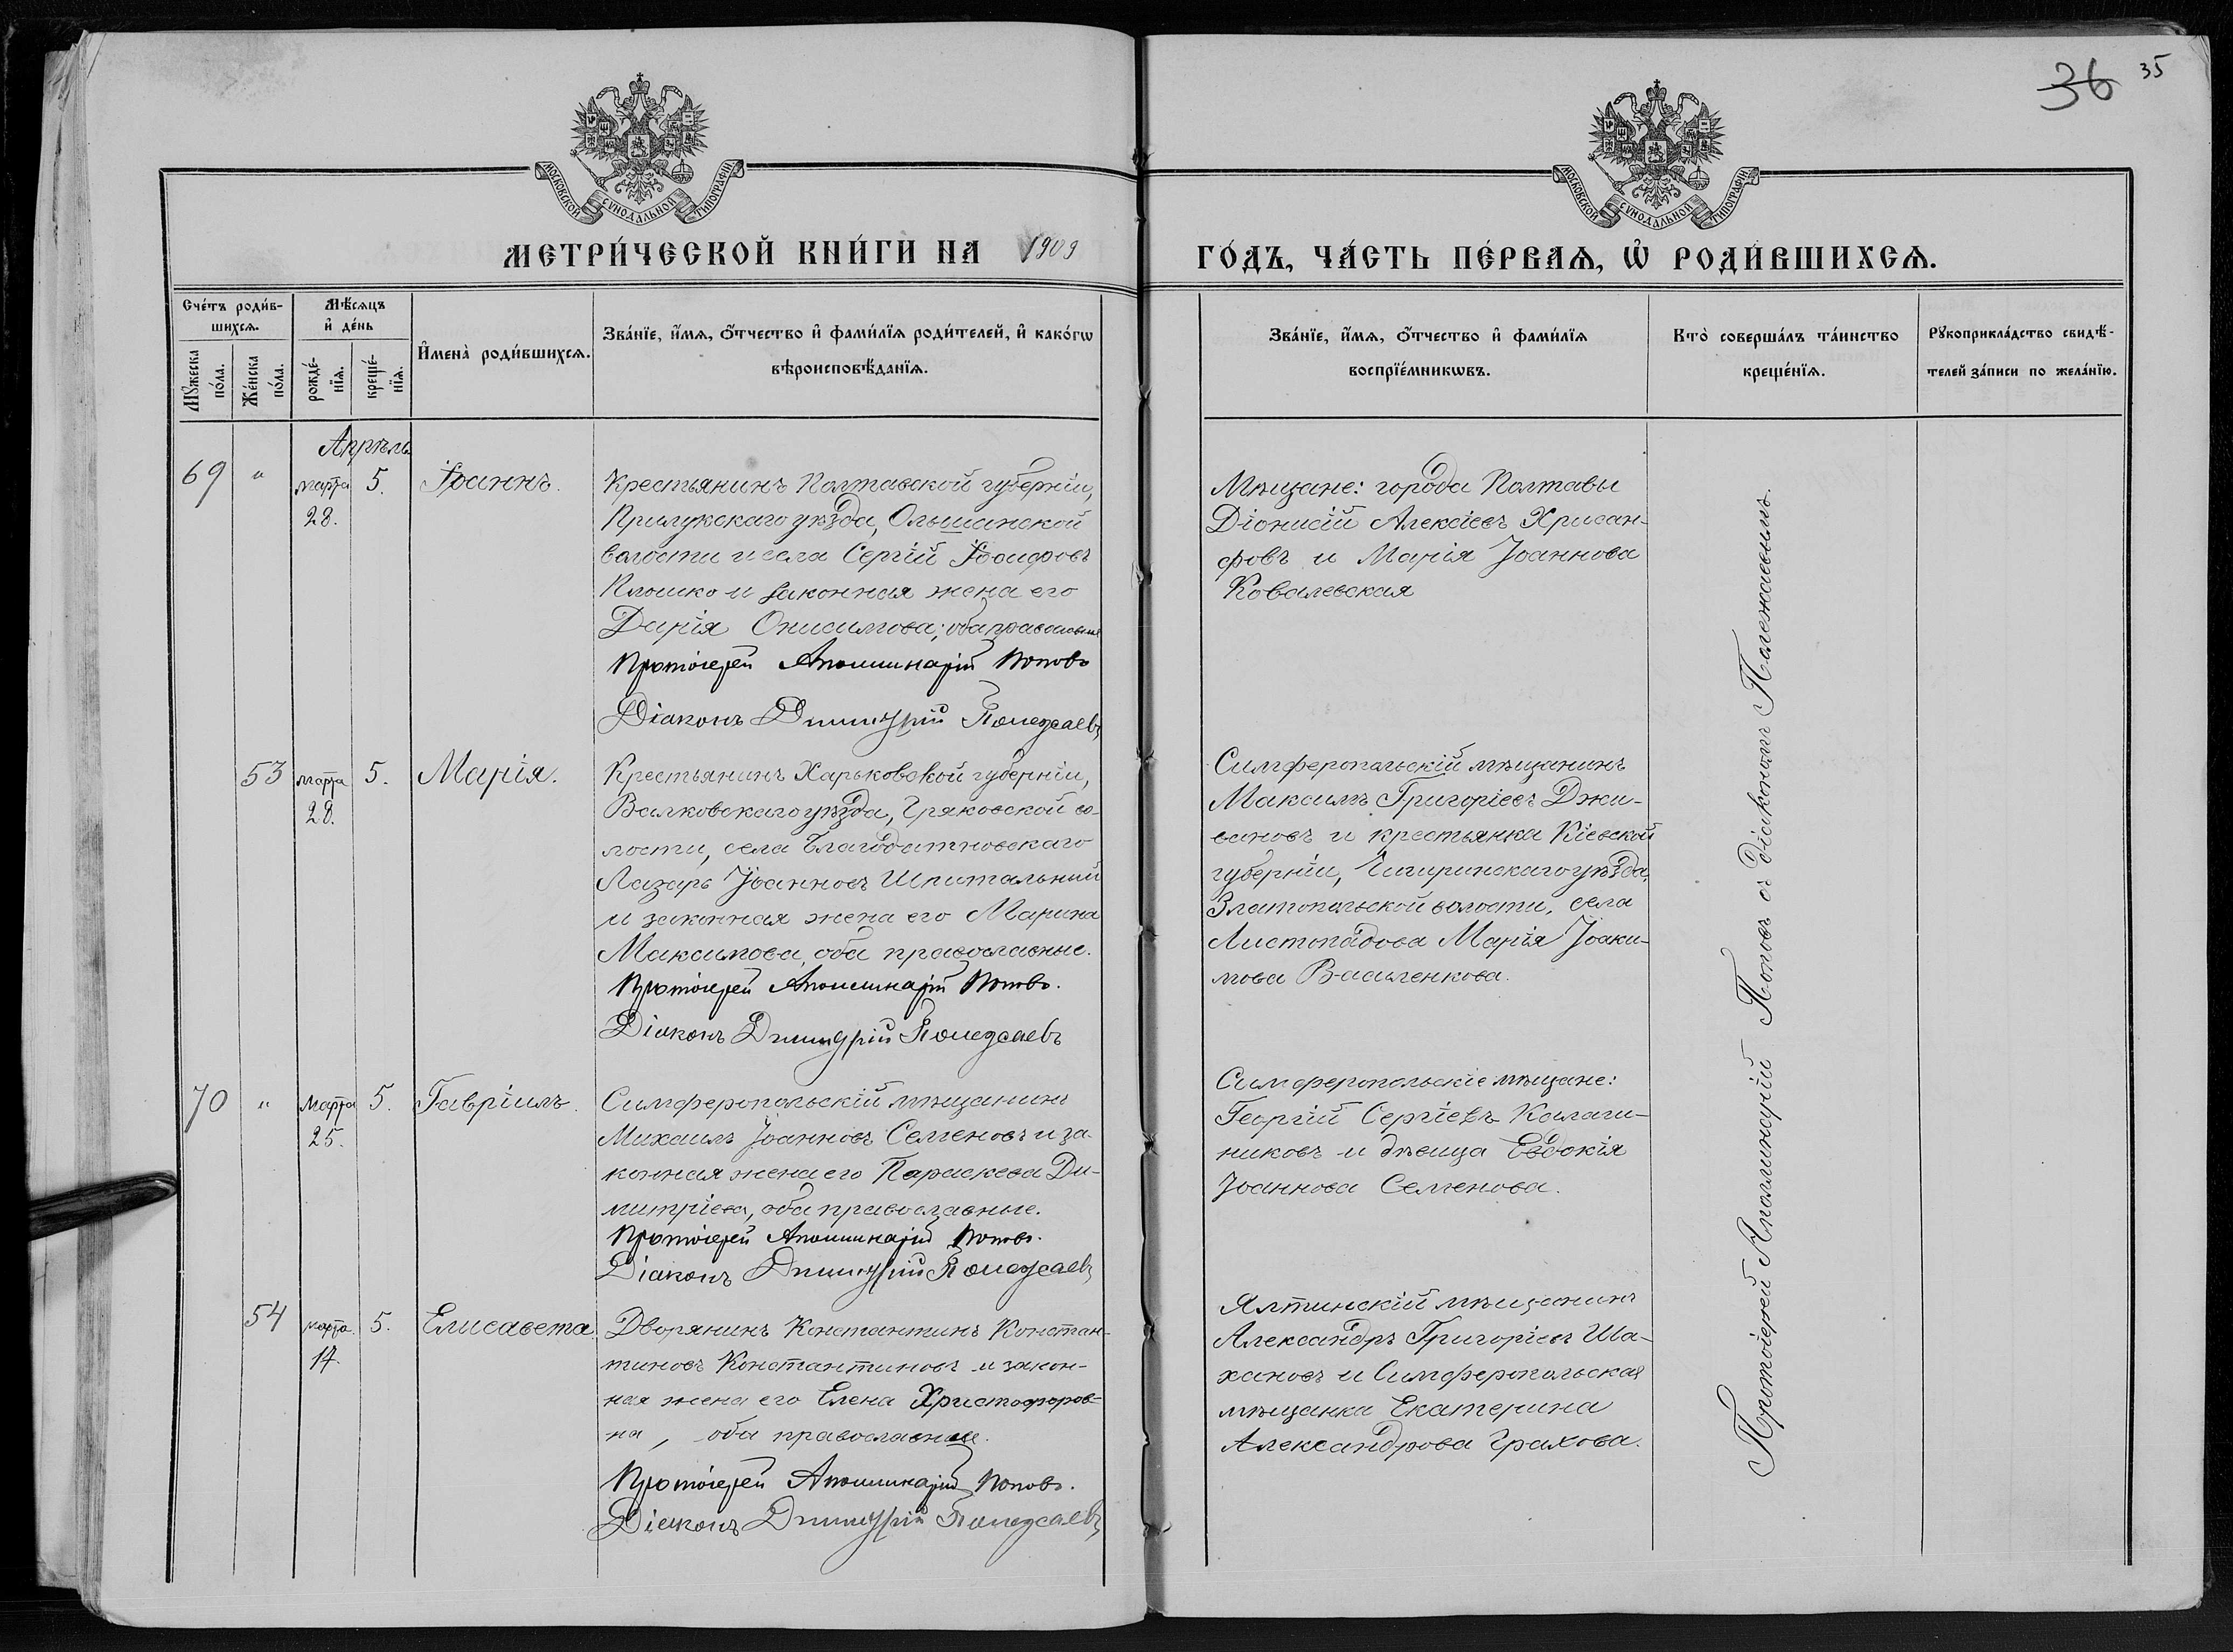 36 35
МОСКОВСКОЙ СѴНОДАЛЬНОЙ ТИПОГРАФІИ
МОСКОВСКОЙ СѴНОДАЛЬНОЙ ТИПОГРАФІИ
МЕТРИ́ЧЕСКОЙ КНИ́ГИ НА 1909
ГО́ДЪ, ЧА́СТЬ ПЕ́РВАѦ, Ѡ҆ РОДИ́ВШИХСѦ.
Сче́тъ роди́в-
шихсѧ.
Мꙋ́жеска
по́ла.
Же́нска
по́ла.
Мѣ́сѧцъ
и҆ де́нь
рожде́-
нїѧ.
креще́-
нїѧ.
И҆мена̀ роди́вшихсѧ.
Зва́нїе, и҆́мѧ, о҆́тчество и҆ фами́лїѧ роди́телей, и҆ како́гѡ
вѣроисповѣ́данїѧ.
Зва́нїе, и҆́мѧ, о҆́тчество и҆ фами́лїѧ
воспрїе́мникѡвъ.
Кто̀ соверша́лъ та́инство
креще́нїѧ.
Рꙋкоприкла́дство свидѣ́-
телей за́писи по жела́нїю.
Апрѣль
69 " марта 5. Іоаннъ.
28.
Крестьянинъ Полтавской губерніи,
Прилукскаго уѣзда, Ольшанской
волости и села Сергій Іосифовъ
Плошко и законная жена его
Дарія Онисимова; оба православные
Протоіерей Аполлинарій Поповъ
Діаконъ Димитрій Полежаевъ
Мѣщане: города Полтавы
Діонисій Алексіевъ Хрисан-
фовъ и Марія Іоаннова
Ковалевская
53 марта 5. Марія.
28.
Крестьянинъ Харьковской губерніи,
Валковскаго уѣзда, Гряковской во-
лости, села Благодатновскаго
Лазарь Іоанновъ Шпитальний
и законная жена его Марина
Максимова, оба православные.
Протоіерей Аполлинарій Поповъ.
Діаконъ Димитрій Полежаевъ
Симферопольскій мѣщанинъ
Максимъ Григоріевъ Джи-
вановъ и крестьянка Кіевской
губерніи, Чигиринскаго уѣзда,
Златопольской волости, села
Листопадова Марія Іоаки-
мова Василенкова.
70 " марта 5. Гавріилъ.
25.
Симферопольскій мѣщанинъ
Михаилъ Іоанновъ Семеновъ и за-
конная жена его Параскева Ди-
митріева, оба православные.
Протоіерей Аполлинарій Поповъ.
Діаконъ Димитрій Полежаевъ
Симферопольскіе мѣщане:
Георгій Сергіевъ Калаги-
никовъ и дѣвица Евдокія
Іоаннова Семенова.
54 марта 5. Елисавета
17.
Дворянинъ Константинъ Констан-
тиновъ Константиновъ и закон-
ная жена его Елена Христофоров-
на, оба православные.
Протоіерей Аполлинарій Поповъ.
Діаконъ Димитрій Полежаевъ
Ялтинскій мѣщанинъ
Александръ Григоріевъ Ша-
хановъ и Симферопольская
мѣщанка Екатерина
Александрова Грахова.
Протоіерей Аполлинарій Поповъ съ діакономъ Полежаевымъ.